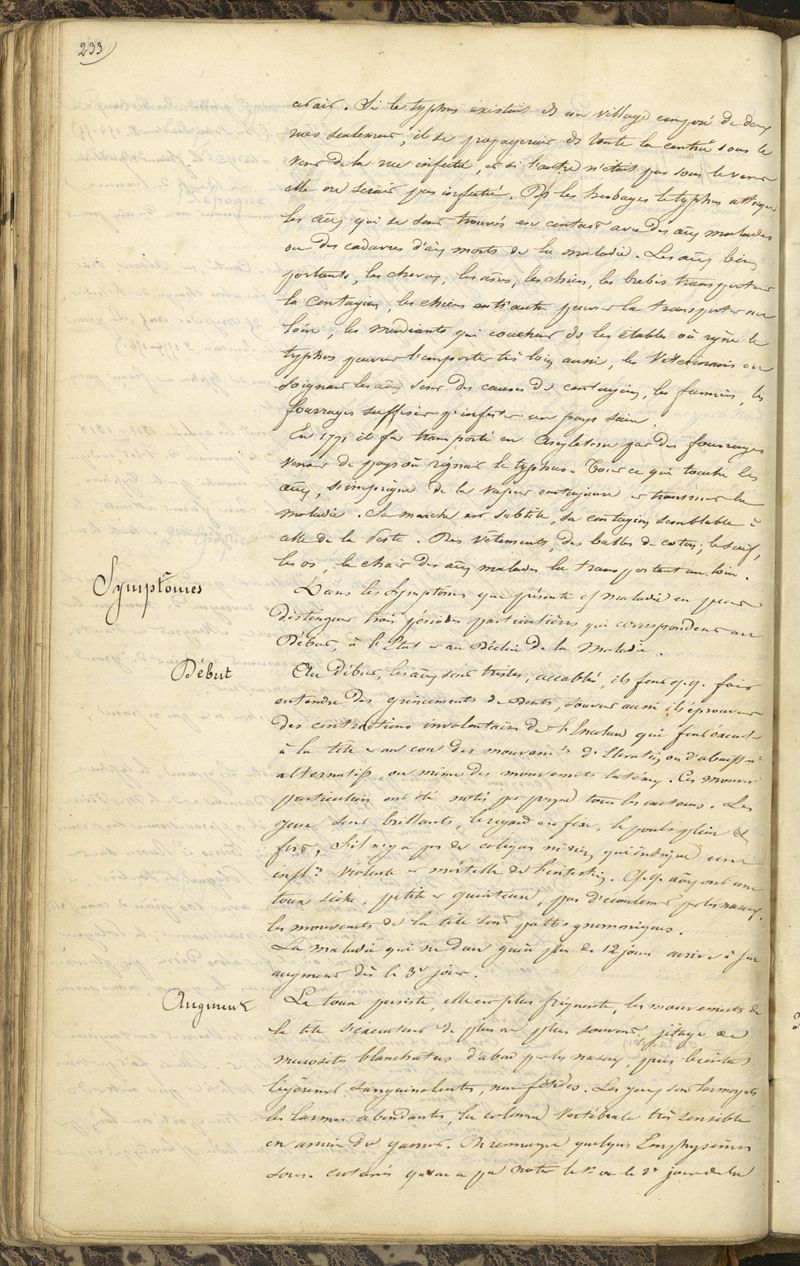 233
cet air. Si le typhus existait ds un village composé de deux
rues seulement, il se propagerait ds toute la contrée sous le
vent de la rue infectée, et si l'autre n'était pas sous le vent
elle ne serait pas infectée. Ds les herbages le typhus attaque
les aux qui se sont trouvés en contact avec des aux malades
ou des cadavres d'aux morts de la maladie. Les aux bien
portants, les chevaux, les ânes, les chiens, les brebis transportent
la contagion, les chiens entr'autre peuvent la transporter au
loin, les mendiants qui couchent ds les étables où règne le
typhus peuvent l'emporter très loin aussi, les Vétérinaires en
soignant les aux sont des causes de contagion, les fumiers, les
fourrages suffisent pr infecter un pays sain.
En 1771 il fut transporté en Angleterre par des fourrages
venant de pays où régnait le typhus. Tout ce qui touche les
aux, s'imprègne de la vapeur contagieuse et transmet la
maladie. Sa marche est subtile, sa contagion semblable à
celle de la Peste. Des vêtements, des balles de coton, le suif,
les os, la chair des aux malades la transportent au loin.
Symptômes
Dans les Symptômes que présente cette maladie on peut
distinguer trois périodes particulières qui correspondent au
Début, à l'Etat et au Déclin de la Maladie.
Début
Au Début, les aux sont tristes, accablés, ils font q.q. fois
entendre des grincements de Dents, souvent aussi ils éprouvent
des contractions involontaires de l'Encolure qui font exécuter
à la tête et au cou des mouvemts d'élévation ou d'abaissmt
alternatifs, ou même des mouvements latéraux. Ces mouvts
particuliers ont été notés pr presque tous les auteurs. Les
yeux sont brillants, le regard est fixe, le pouls plein et
fort, s'il n'y a pas de coliques
inflon violente et mortelle de l'intestin. Q.q. aux ont une
toux sèche, petite et quinteuse, pas d'écoulement par les naseaux,
les mouvements de la tête sont pathognomoniques.
La maladie qui ne dure guère plus de 12 jours arrive à son
augment dès le 3e jour.
Augment
La toux persiste, elle est plus fréquente, les mouvements de
la tête s'exécutent de plus en plus souvent, jetage de
mucosités blanchâtres d'abord par les naseaux, puis
légèremt sanguinolentes, non fétides. Les yeux sont larmoyants
les larmes abondantes, la colonne vertébrale très sensible
en arrière du garrot. On remarque quelques Emphysèmes
sous-cutanés qu'on a pu noter le 1er ou le 2e jour de la